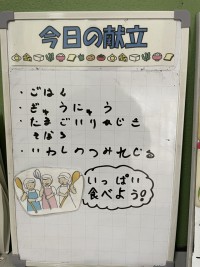 今日の献立
・ごはん
・ぎゅうにゅう
・たまごいりやさい
そぼろ
・いわしのつみれじる
いっぱい
食べよう!